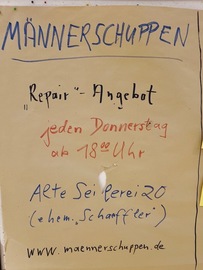 MÄNNERSCHUPPEN
„Repair"- Angebot
jeden Donnerstag
ab 18⁰⁰ Uhr
Alte Seilerei 20
(ehem. „Scharffler")
www.maennerschuppen.de